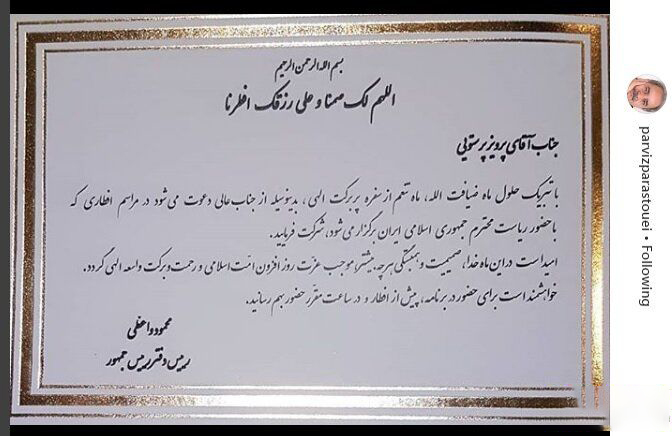 بسم الله الرحمن الرحیم
اللهم لک صمنا و علی رزقک افطرنا
جناب آقای پرویز پرستویی
با تبریک حلول ماه ضیافت الله، ماه تنعم از سفره پر برکت الهی، بدینوسیله از جناب عالی دعوت می شود در مراسم افطاری که
با حضور ریاست محترم جمهوری اسلامی ایران برگزار می شود، شرکت فرمایید.
امید است در این ماه خدا، صمیمیت و همبستگی هر چه بیشتر، موجب عزت روز افزون امت اسلامی و رحمت و برکت واسعه الهی گردد.
خواهشمند است برای حضور در برنامه، پیش از افطار و در ساعت مقرر حضور بهم رسانید.
محمود واعظی
رییس دفتر رییس جمهور
parvizparastouei • Following